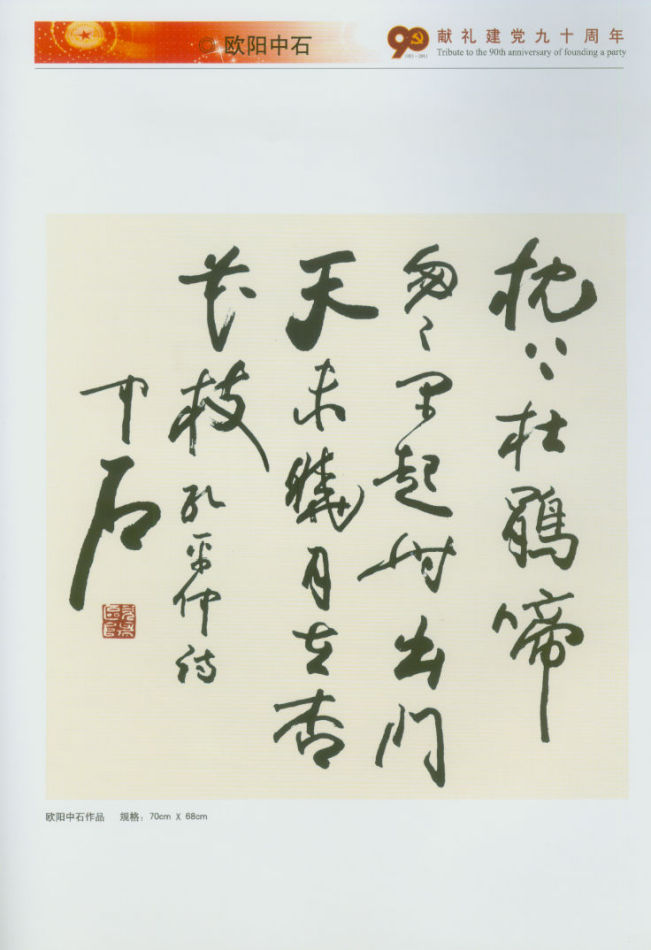 欧阳中石
90
1921-2011
献礼建党九十周年
Tribute to the 90th anniversary of founding a party
枕上杜鵑啼
匆々早起时出门
天未曉月在杏
花枝 孔平仲诗
中石
欧阳中石作品 规格：70cm X 68cm